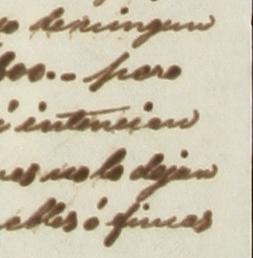 de ningun
500.- pero
intencion
nas no lo dejan
ebles ó fincas